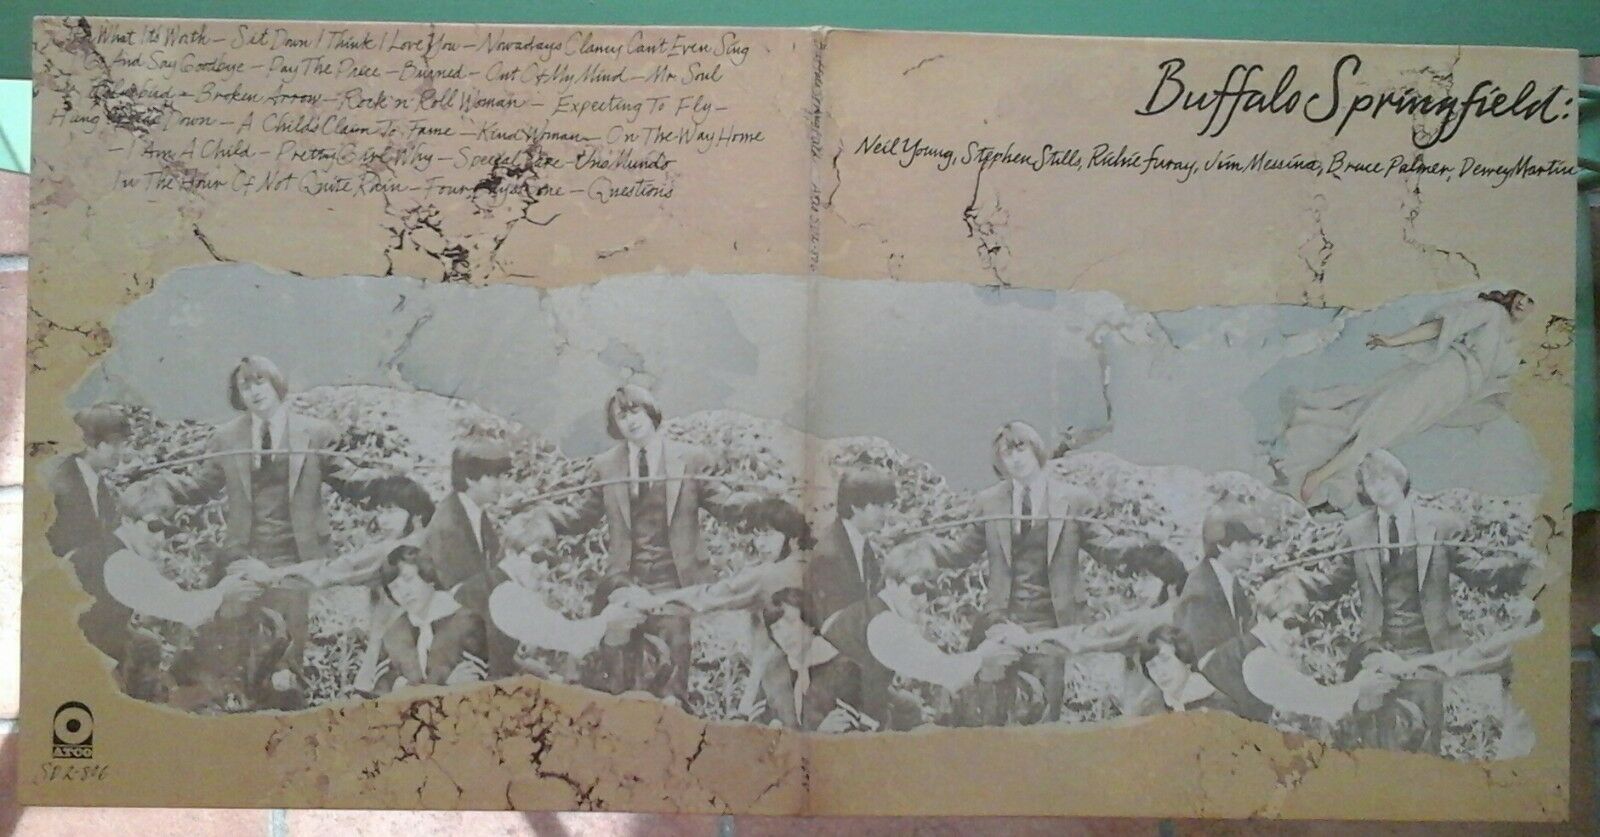 For What It's Worth – Sit Down I Think I Love You – Nowadays Clancy Can't Even Sing
Go And Say Goodbye – Pay The Price – Burned – Out Of My Mind – Mr. Soul
Bluebird – Broken Arrow – Rock 'n' Roll Woman – Expecting To Fly –
Hung Down – A Child's Claim To Fame – Kind Woman – On The Way Home
– I Am A Child – Pretty Girl Why – Special Care – Uno Mundo
In The Hour Of Not Quite Rain – Four Days Gone – Questions
Buffalo Springfield:
Neil Young, Stephen Stills, Richie Furay, Jim Messina, Bruce Palmer, Dewey Martin
ATCO
SD 2-806